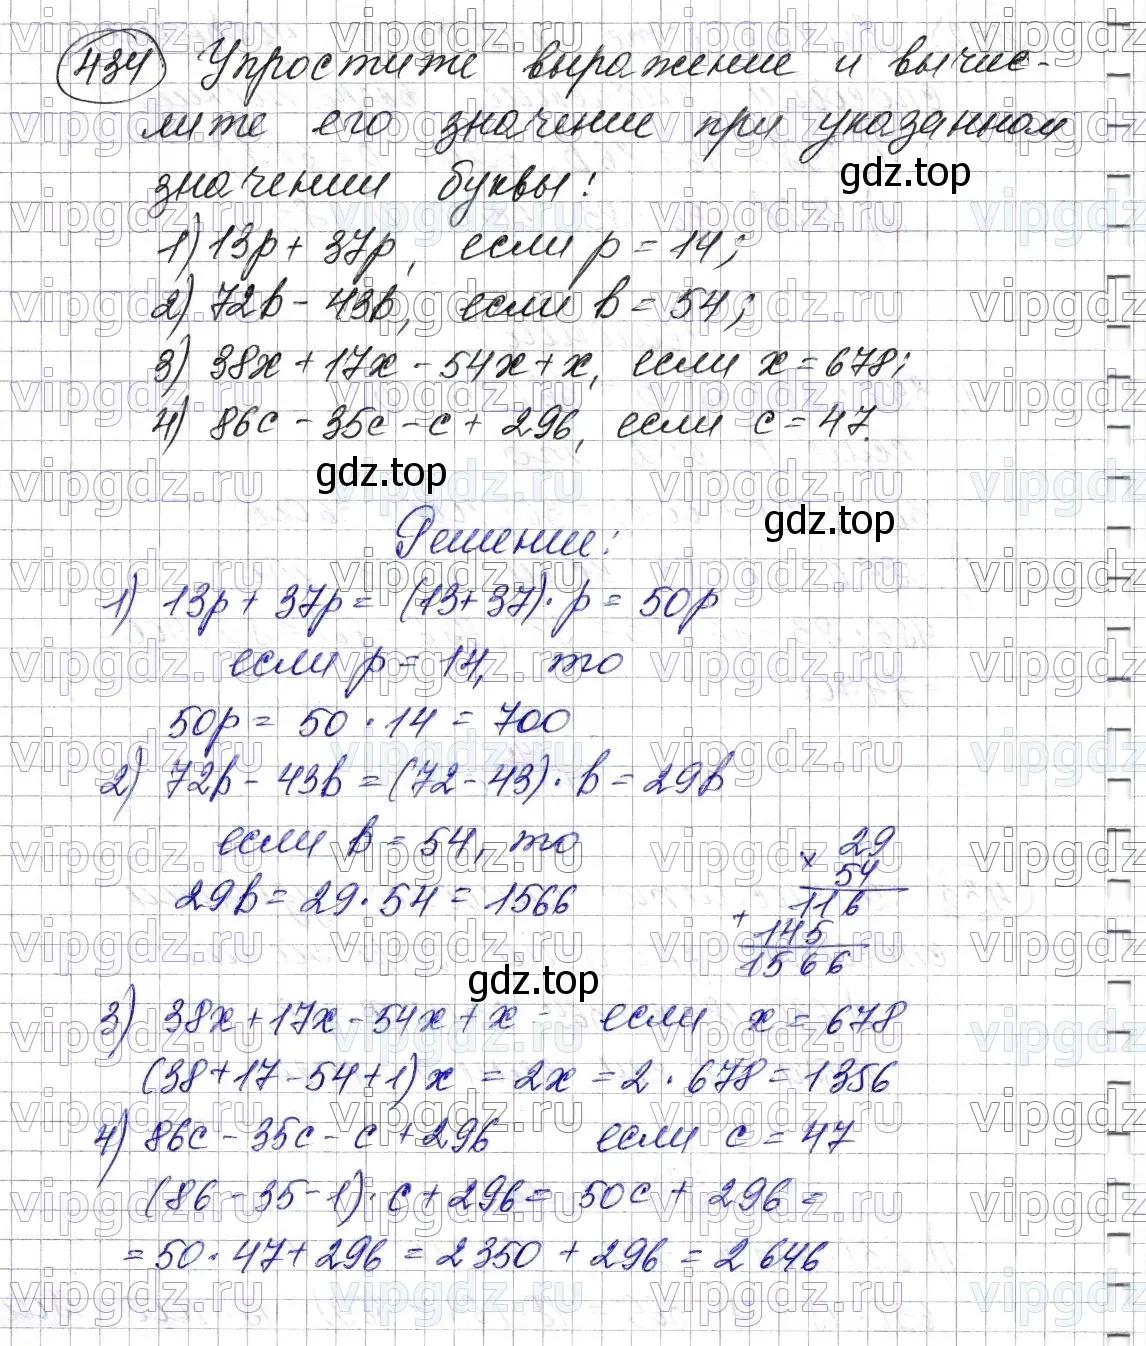 434 Упростите выражение и вычис-
лите его значение при указанном
значении буквы:
gdz.top
1) 13p + 37p, если p = 14;
2) 72b - 43b, если b = 54;
3) 38x + 17x - 54x + x, если x = 678;
4) 86c - 35c - c + 296, если c = 47.
gdz.top
gdz.top
Решение:
1) 13p + 37p = (13 + 37) · p = 50p
если p = 14, то
50p = 50 · 14 = 700
2) 72b - 43b = (72 - 43) · b = 29b
если b = 54, то
29b = 29 · 54 = 1566
× 29
54
+ 116
145
1566
gdz.top
3) 38x + 17x - 54x + x - если x = 678
(38 + 17 - 54 + 1) x = 2x = 2 · 678 = 1356
4) 86c - 35c - c + 296 если c = 47
(86 - 35 - 1) · c + 296 = 50c + 296 =
= 50 · 47 + 296 = 2350 + 296 = 2646
vipgdz.ru